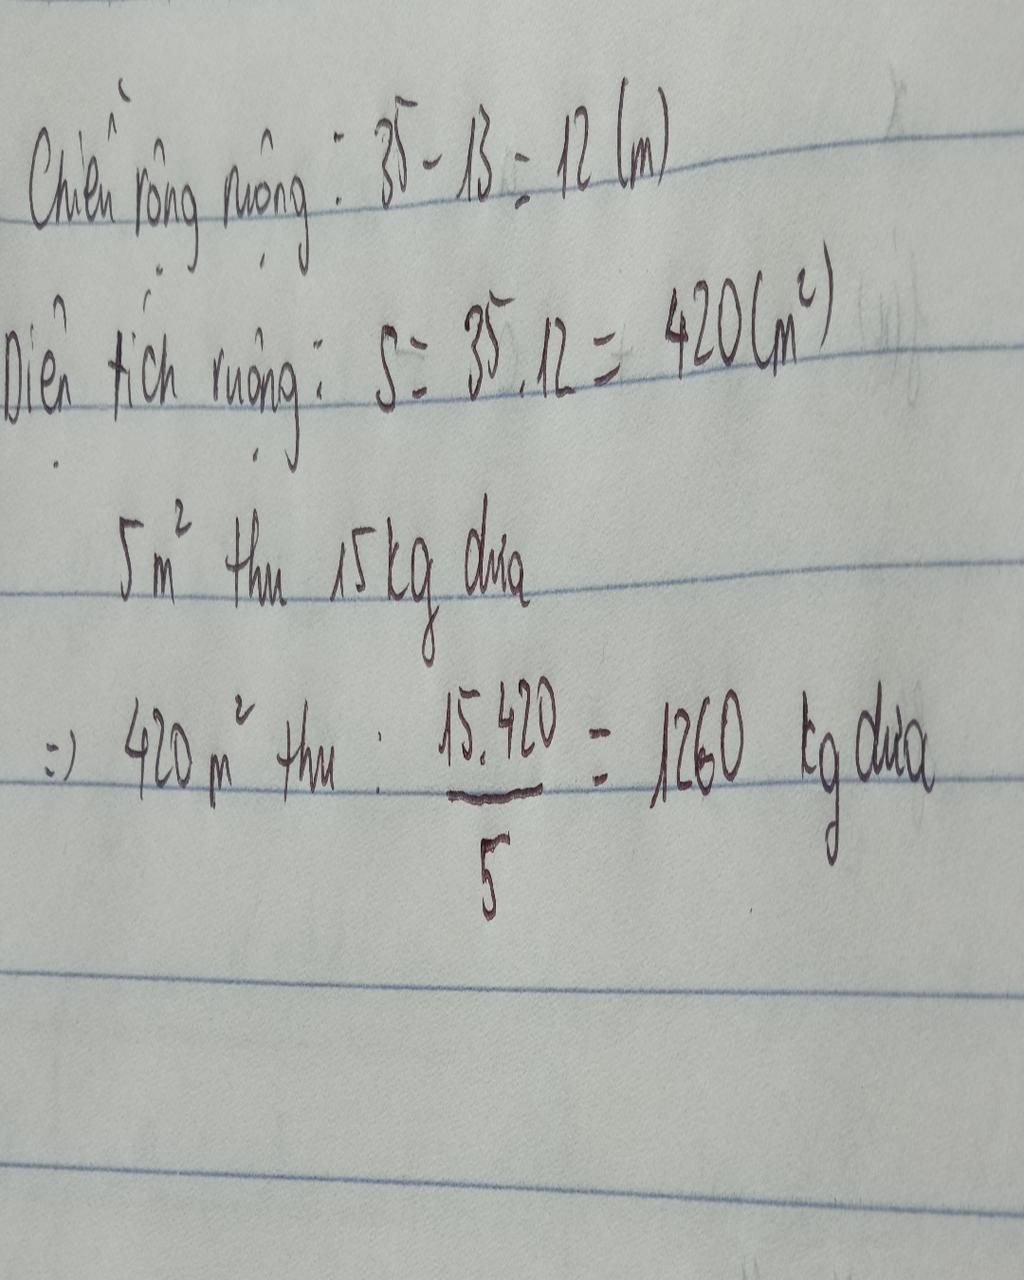 Chiều rộng ruộng: 35 - 13 = 12 (m)
Diện tích ruộng: S = 35.12 = 420 (m²)
5m² thu 15kg dưa
=> 420 m² thu : 15.420/5 = 1260 kg dưa